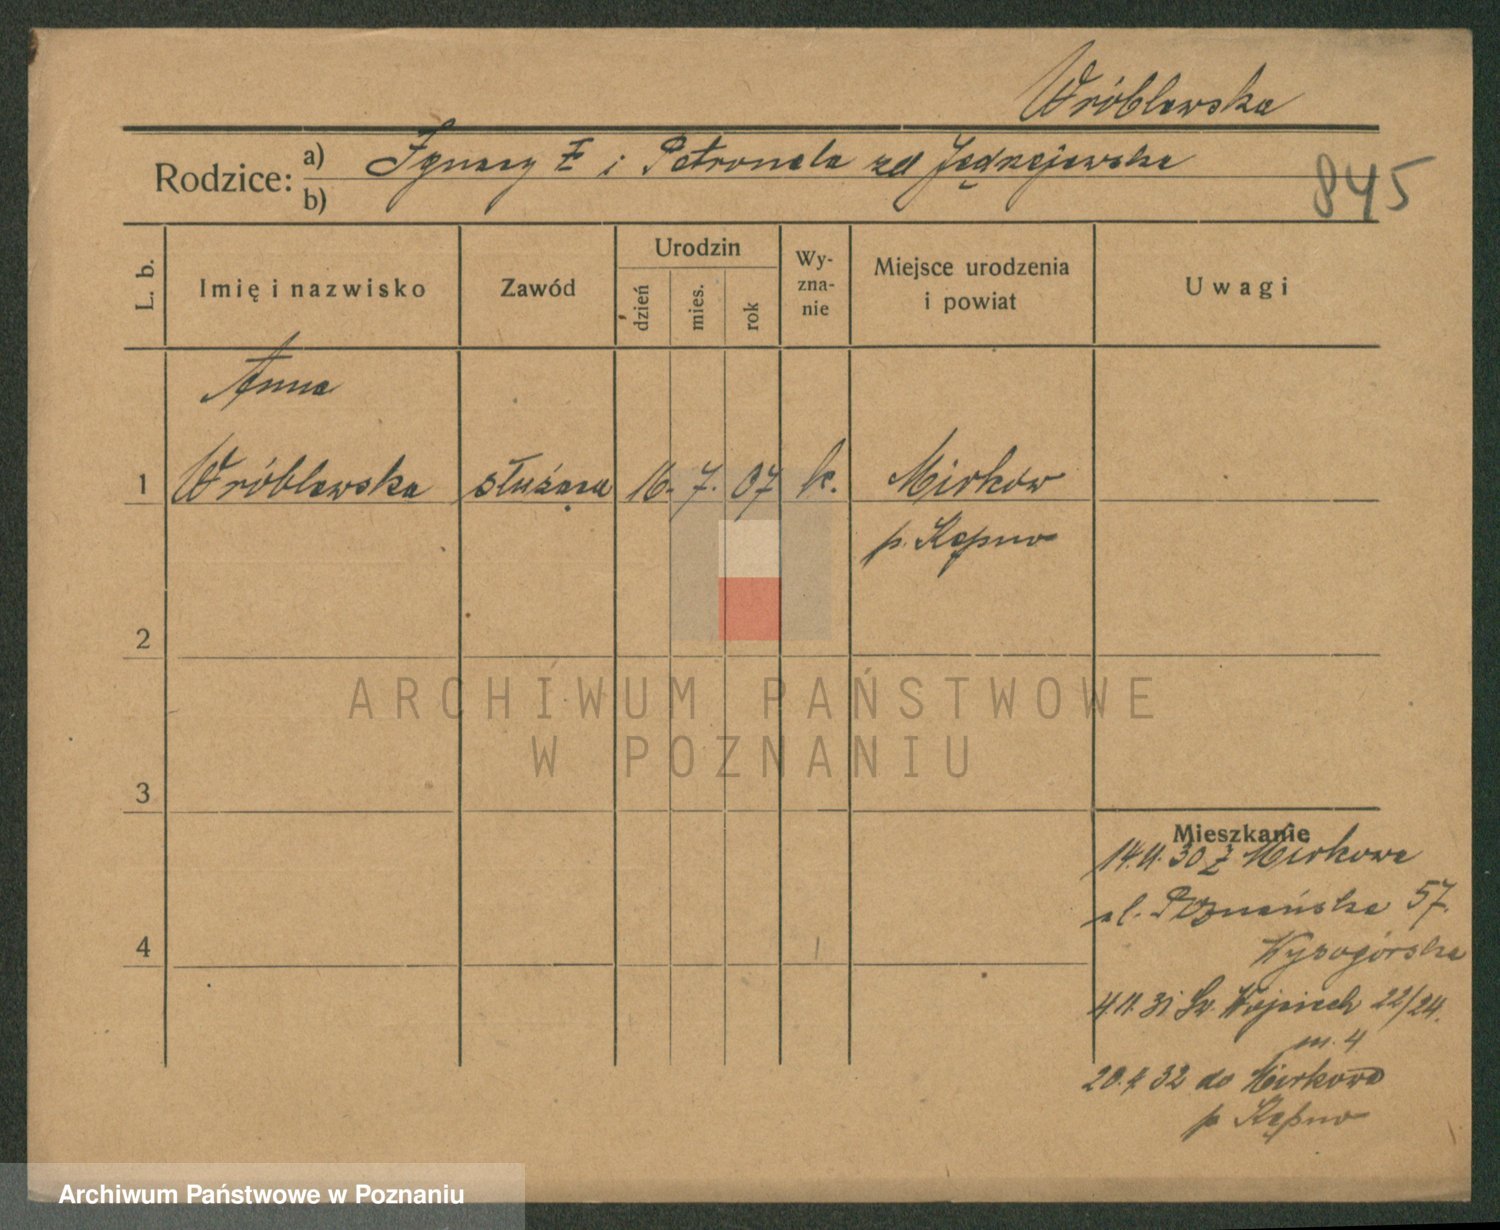 Wróblewska
Rodzice: a) Ignacy i Petronela zd Jędrzejewska
b)
845
L. b.
Imię i nazwisko
Zawód
Urodzin
dzień
mies.
rok
Wy-
zna-
nie
Miejsce urodzenia
i powiat
Uwagi
Anna
1 Wróblewska służąca 16. 7. 07 k. Mirków
p. Kępno
2
ARCHIWUM PAŃSTWOWE
W POZNANIU
3
4
Mieszkanie
30 z Mirkowa
ul. Poznańska 57.
Wysogórska
31 Św. Wojciech 22/24.
m. 4
32 do Mirkowa
p Kępno
Archiwum Państwowe w Poznaniu